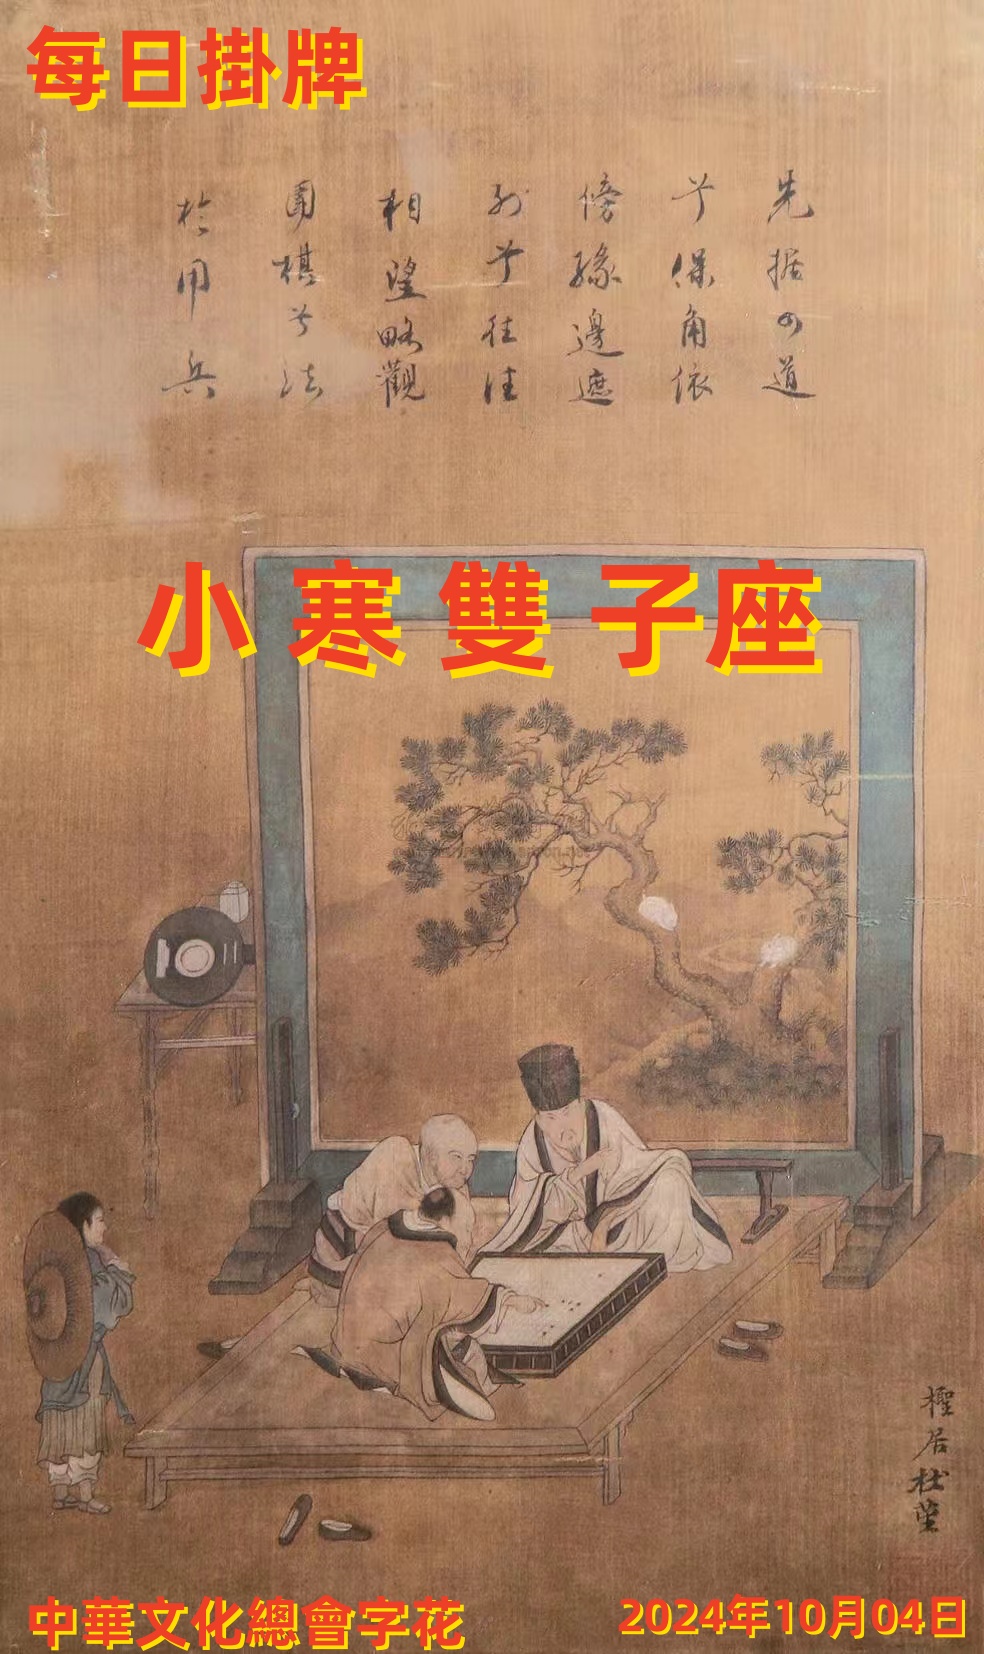 每日掛牌
先据四道
兮保角依
傍緣邊遮
列兮往往
相望略觀
圍棋兮法
於用兵
小寒雙子座
檉居杜堇
中華文化總會字花
2024年10月04日